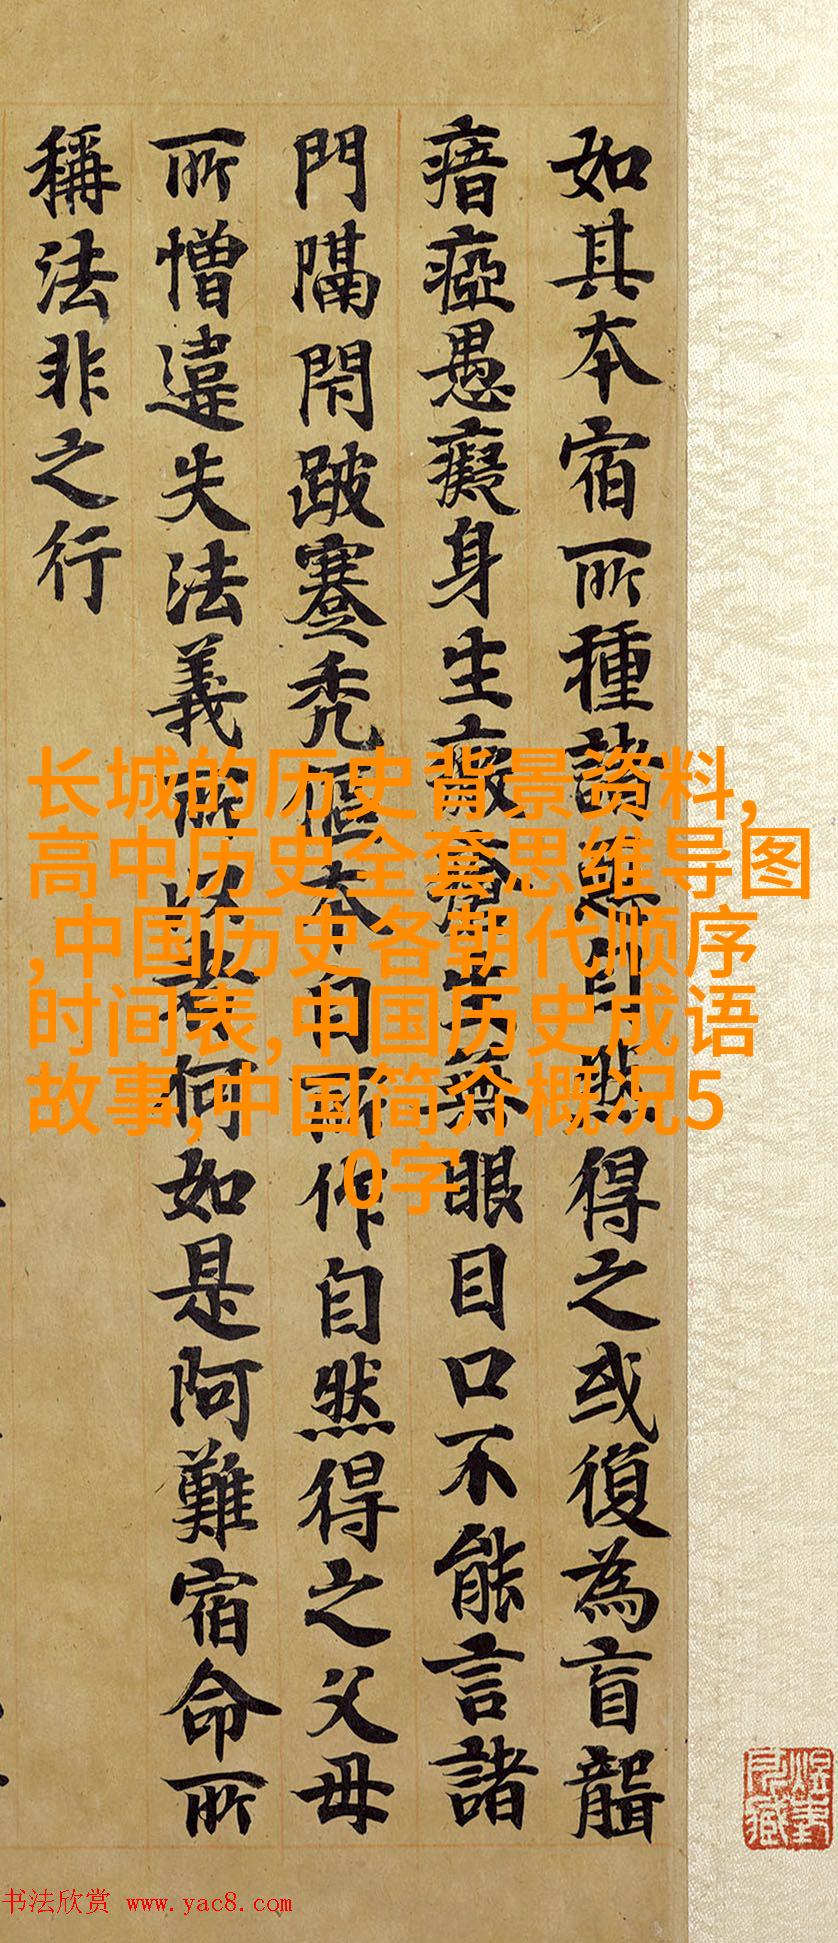 如其本宿所種諸惡自然得之或復為盲聾
瘖瘂愚癡身生瘡生無眼目口不能言諸
門隔閇跛蹇秃傴本自所作自然得之父母
所憎違失法義所以者何如是阿難宿命所
稱法非之行
长城的历史背景资料,
高中历史全套思维导图
,中国历史各朝代顺序
时间表,中国历史成语
故事,中国简介概况5
0字
书法欣赏 www.yac8.com